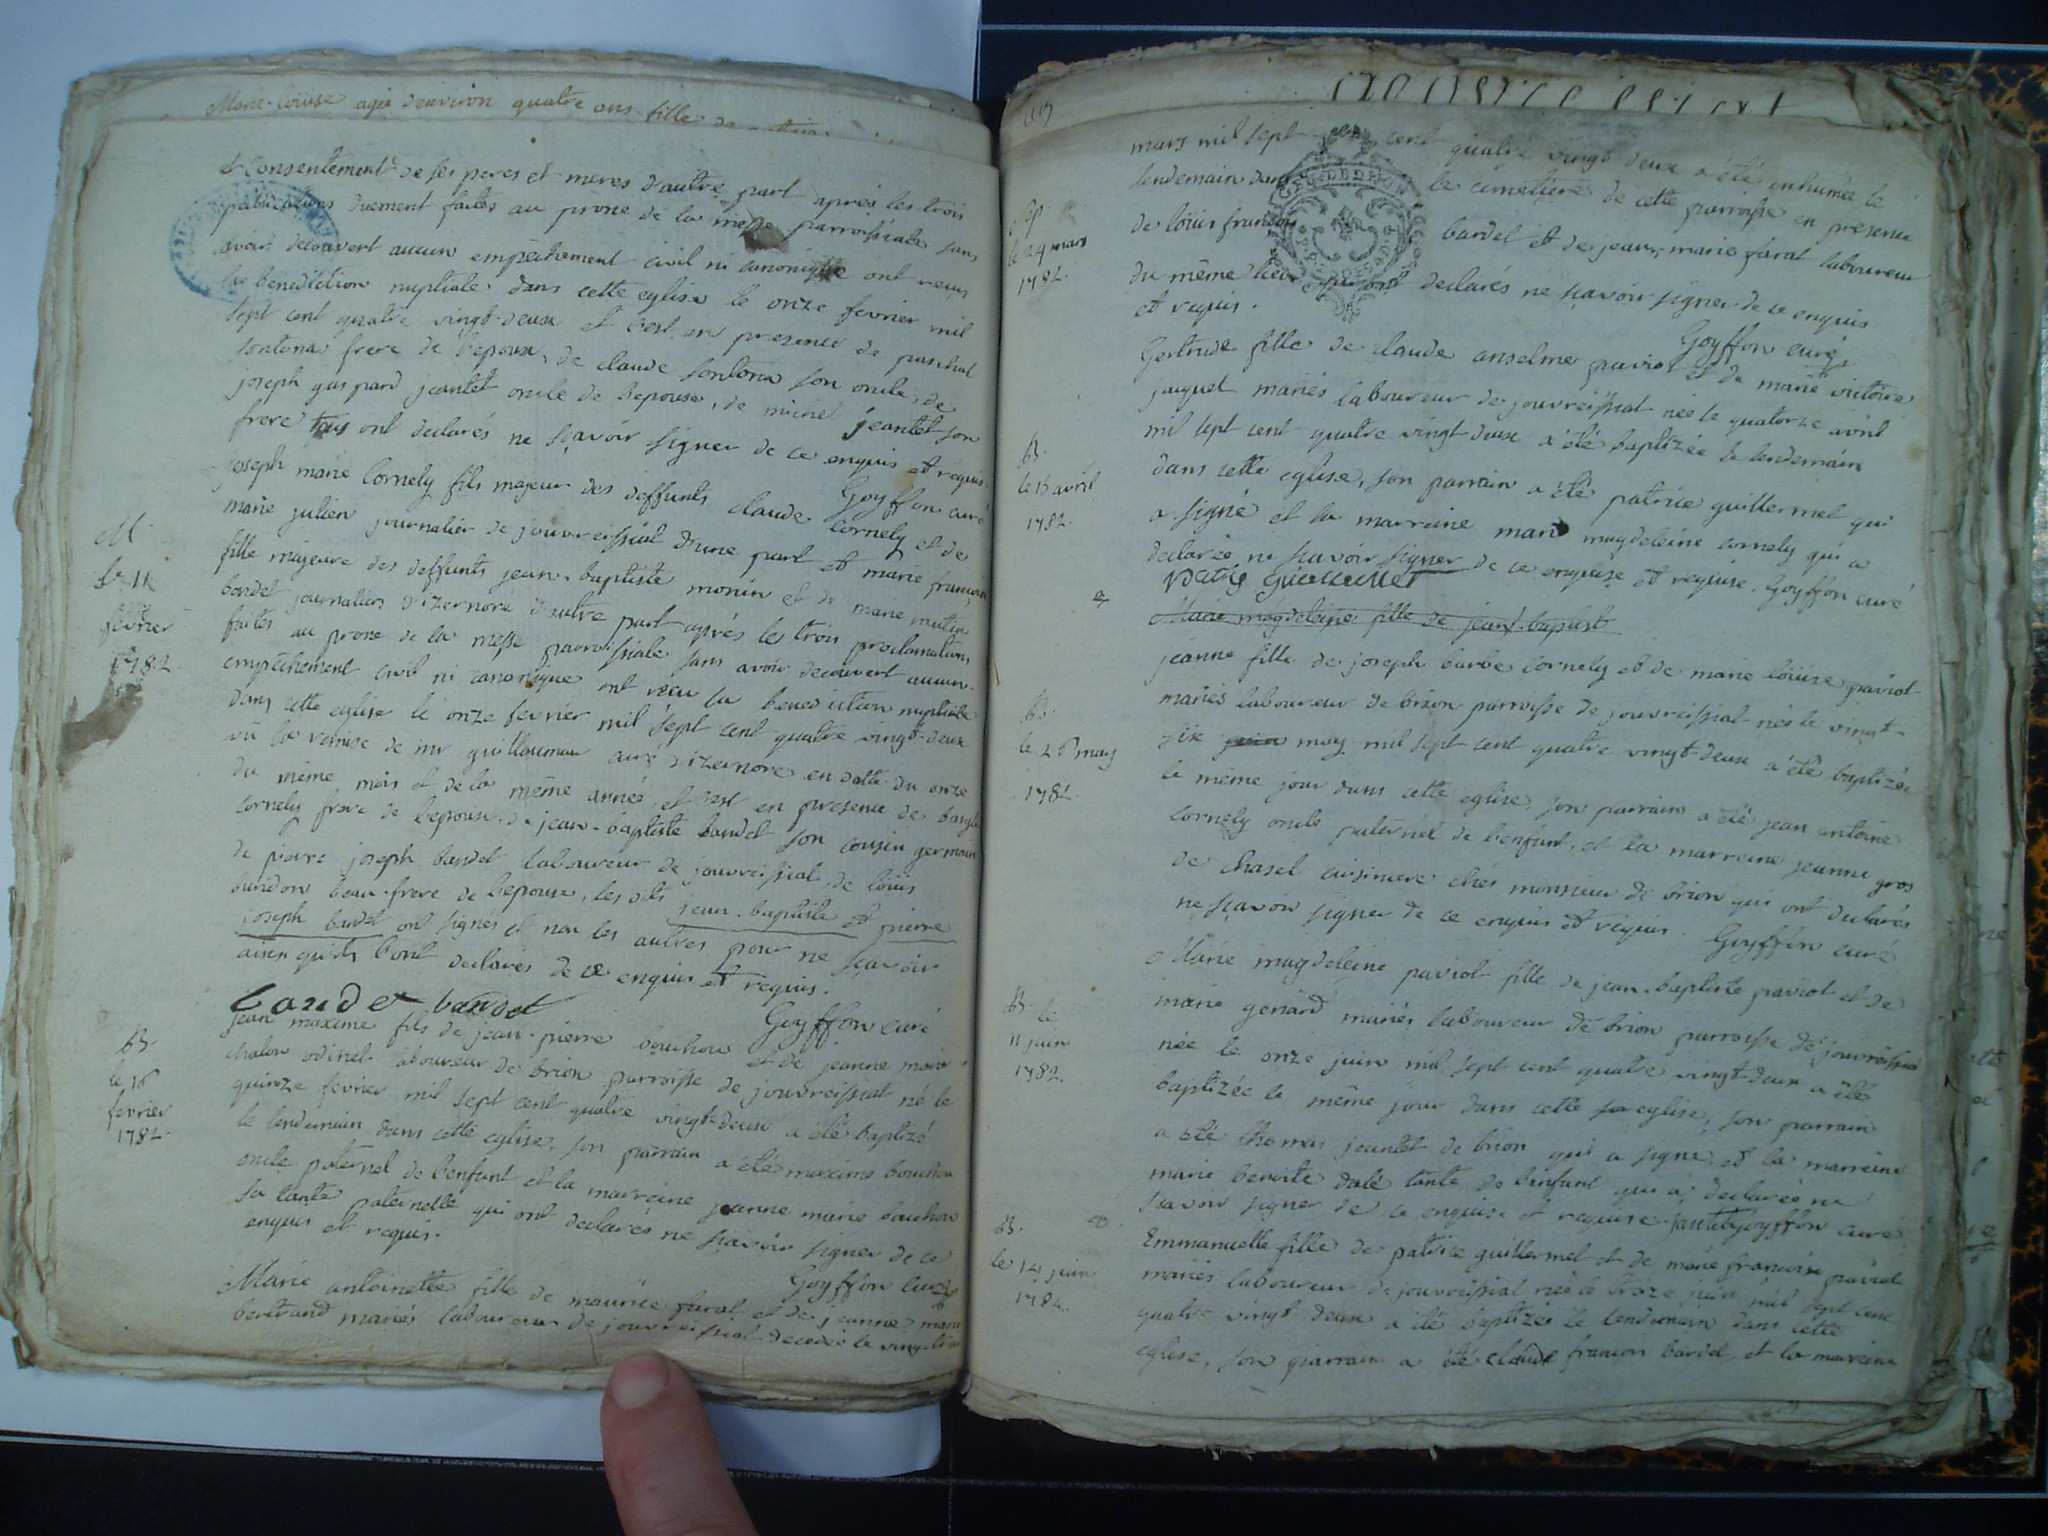 Marie-loüise agée d'environ quatre ans fille de
et Consentement de ses peres et meres d'autre part après les trois
publications duement faites au prone de la messe parroissiale sans
avoir decouvert aucun empêchement civil ni canonique ont reçus
la benediction nuptiale dans cette eglise le onze fevrier mil
sept cent quatre vingt-deux et c'est en presence de paschal
sontona frere de l'epoux, de claude sontona son oncle, de
joseph gaspard jeantet oncle de l'epouse, de michel jeantet son
frere tous ont declarés ne sçavoir signer de ce enquis et requis.
Goyffon curé
joseph marie Cornely fils majeur des deffunts claude Cornely et de
marie julien journalier de jouvreissiat d'une part et marie françoise
fille majeure des deffunts jean-baptiste monin et de marie
bondet journaliers d'izernore d'autre part après les trois proclamations
faites au prone de la messe parroissiale sans avoir decouvert aucun
empêchement civil ni canonique ont reçu la benediction nuptiale
dans cette eglise le onze fevrier mil sept cent quatre vingt-deux
vû la remise de mr guillaumau curé d'izernore en datte du onze
du même mois et de la même année, et c'est en presence de
Cornely frere de l'epoux, de jean-baptiste baudet son cousin germain
de pierre joseph baudet laboureur de jouvreissiat, de loüis
beau-frere de l'epouse, les dits jean-baptiste et pierre
joseph baudet ont signés et non les autres pour ne sçavoir
ainsi qu'ils l'ont declarés de ce enquis et requis.
baudet baudet
Goyffon curé
M.
le 11
fevrier
1782
jean maxime fils de jean-pierre bouchou et de jeanne marie
chalon odinet laboureur de brion parroisse de jouvreissiat né le
quinze fevrier mil sept cent quatre vingt-deux a été baptizé
le lendemain dans cette eglise, son parrain a été maxime bouchou
oncle paternel de l'enfant et la marreine jeanne marie bouchou
sa tante paternelle qui ont declarés ne sçavoir signer de ce
enquis et requis.
Goyffon curé
B.
le 16
fevrier
1782.
Marie antoinette fille de maurice farat et de jeanne marie
bertrand mariés laboureur de jouvreissiat decedée le vingt trois
mars mil sept cent quatre vingt deux a été inhumée le
lendemain dans le cimetière de cette parroisse en presence
de loüis françois bardel et de jean-marie farat laboureur
du même lieu qui ont declarés ne sçavoir signer de ce enquis
et requis.
Goyffon curé
Sep.
le 24 mars
1782.
Gertrude fille de claude anselme paviot et de marie victoire
juquet mariés laboureur de jouvreissiat née le quatorze avril
mil sept cent quatre vingt-deux a été baptizée le lendemain
dans cette eglise, son parrain a été patrice guillermet qui
a signé et la marreine marie magdeleine cornely qui a
declarée ne sçavoir signer de ce enquise et requise. Goyffon curé
B.
le 15 avril
1782.
Marie magdeleine fille de jean-baptiste
jeanne fille de joseph barbe Cornely et de marie loüise paviot
mariés laboureur de brion parroisse de jouvreissiat née le vingt-
six may mil sept cent quatre vingt-deux a été baptizée
le même jour dans cette eglise, son parrain a été jean antoine
Cornely oncle paternel de l'enfant, et la marreine jeanne gros
de chasel cuisiniere chés monsieur de brion qui ont declarés
ne sçavoir signer de ce enquis et requis. Goyffon curé
B.
le 26 may
1782.
Marie magdeleine paviot fille de jean-baptiste paviot et de
marie genard mariés laboureur de brion parroisse de jouvreissiat
née le onze juin mil sept cent quatre vingt-deux a été
baptizée le même jour dans cette eglise, son parrain
a été thomas jeantet de brion qui a signé et la marreine
marie benoite dalé tante de l'enfant qui a declarée ne
sçavoir signer de ce enquise et requise. jantet Goyffon curé
B. le
11 juin
1782.
Emmanuelle fille de patrice guillermet et de marie françoise paviot
mariés laboureur de jouvreissiat née le treize juin mil sept cent
quatre vingt-deux a été baptizée le lendemain dans cette
eglise, son parrain a été claude françois bardel et la marreine
B.
le 14 juin
1782.